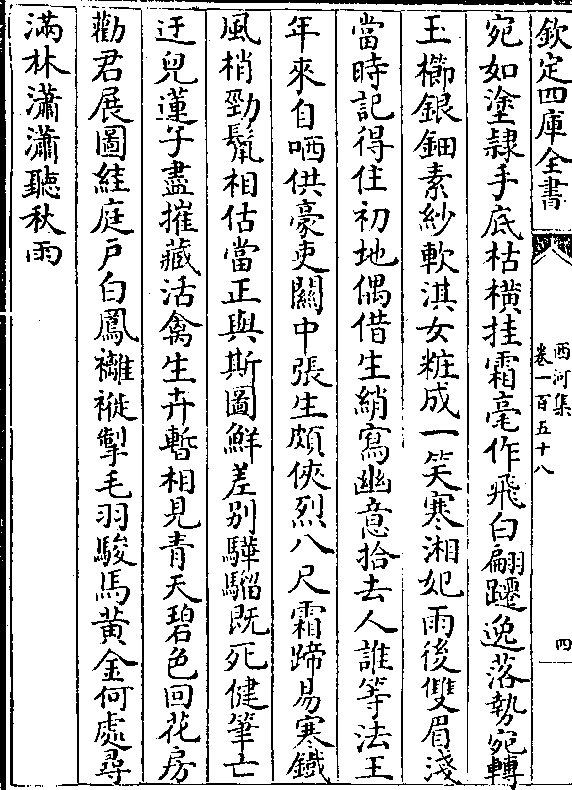 欽定四庫全書
西河集
卷一百五十八
四
宛如塗隷手底枯横挂霜毫作飛白翩躚逸落勢宛轉
玉櫛銀鈿素紗軟淇女粧成一笑寒湘妃雨後雙眉淺
當時記得住初地偶借生綃寫幽意拾去人誰等法王
年來自哂供豪吏關中張生頗俠烈八尺霜蹄易寒鐡
風梢勁鬛相估當正與斯圖鮮差别驊騮既死健筆亡
迂兒蓮子盡摧藏活禽生卉暫相見青天碧色回花房
勸君展圖絓庭戸白鳳襳褷掣毛羽駿馬黄金何處尋
滿林瀟瀟聽秋雨